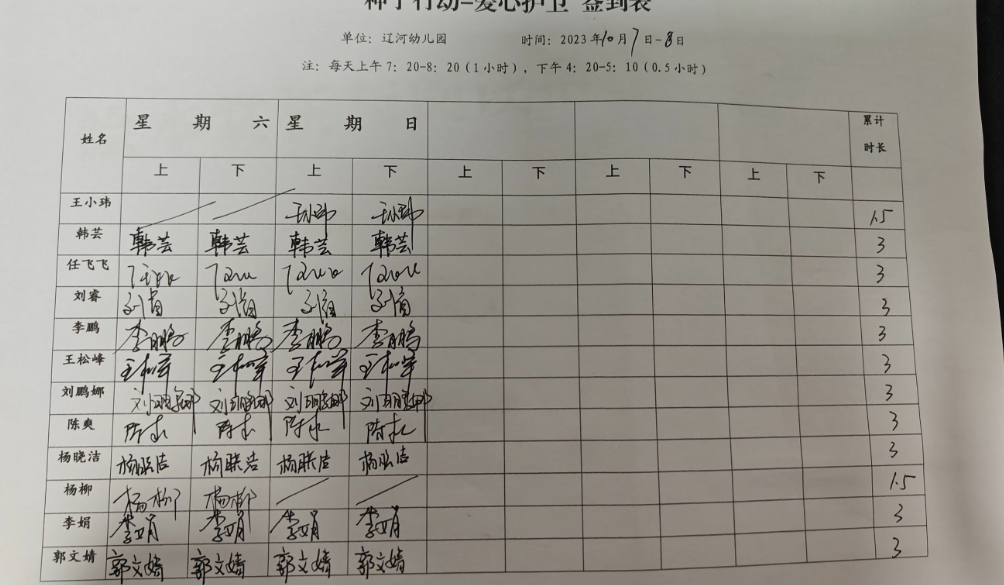 种子行动=爱心护卫 签到表
单位：辽河幼儿园 时间：2023年10月7日-8日
注：每天上午7：20-8：20(1小时)，下午4：20-5：10(0.5小时)
姓名 星期六 星期日 累计时长
上 下 上 下 上 下 上 下 上 下
王小玮 王小玮 王小玮 1.5
韩芸 韩芸 韩芸 韩芸 韩芸 3
任飞飞 3
刘睿 3
李鹏 李鹏 李鹏 李鹏 李鹏 3
王松峰 王松峰 王松峰 王松峰 王松峰 3
刘鹏娜 刘鹏娜 刘鹏娜 刘鹏娜 刘鹏娜 3
陈爽 陈爽 陈爽 陈爽 陈爽 3
杨晓洁 杨晓洁 杨晓洁 杨晓洁 杨晓洁 3
杨柳 杨柳 杨柳 1.5
李娟 李娟 李娟 李娟 李娟 3
郭文婧 郭文婧 郭文婧 郭文婧 郭文婧 3